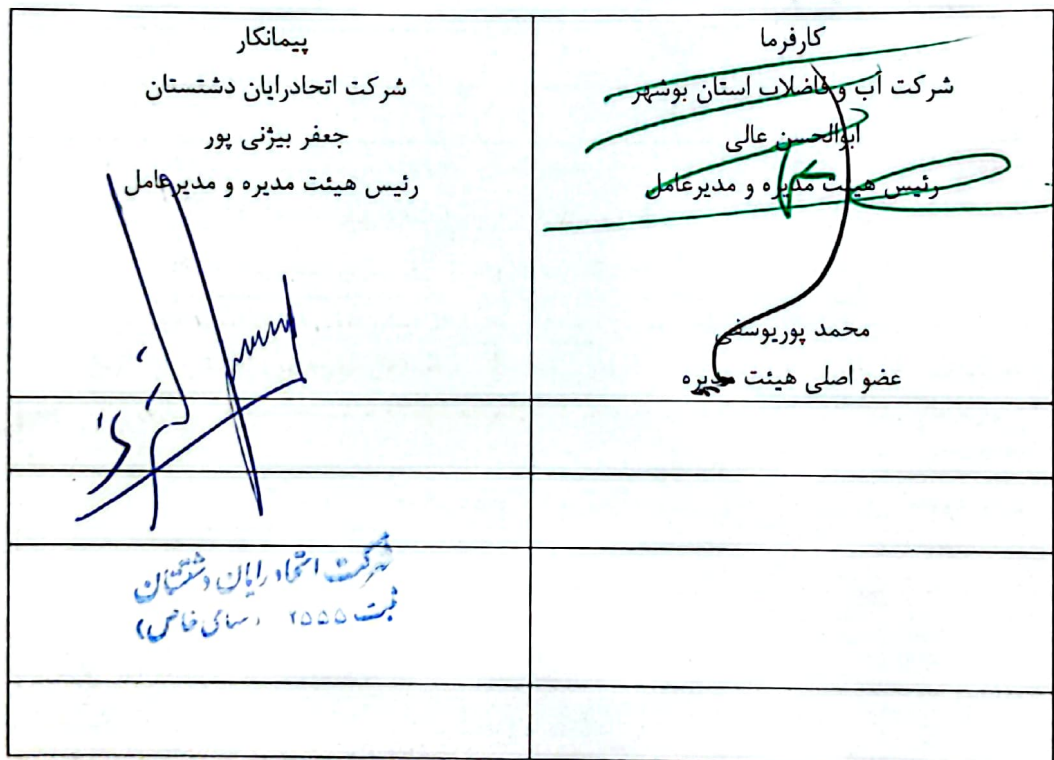 کارفرما
شرکت آب و فاضلاب استان بوشهر
ابوالحسن عالی
رئیس هیئت مدیره و مدیرعامل
محمد پوریوسفی
عضو اصلی هیئت مدیره
پیمانکار
شرکت اتحادرایان دشتستان
جعفر بیژنی پور
رئیس هیئت مدیره و مدیرعامل
شرکت اتحاد رایان دشتستان
ثبت ۲۵۵۵ (سهامی خاص)